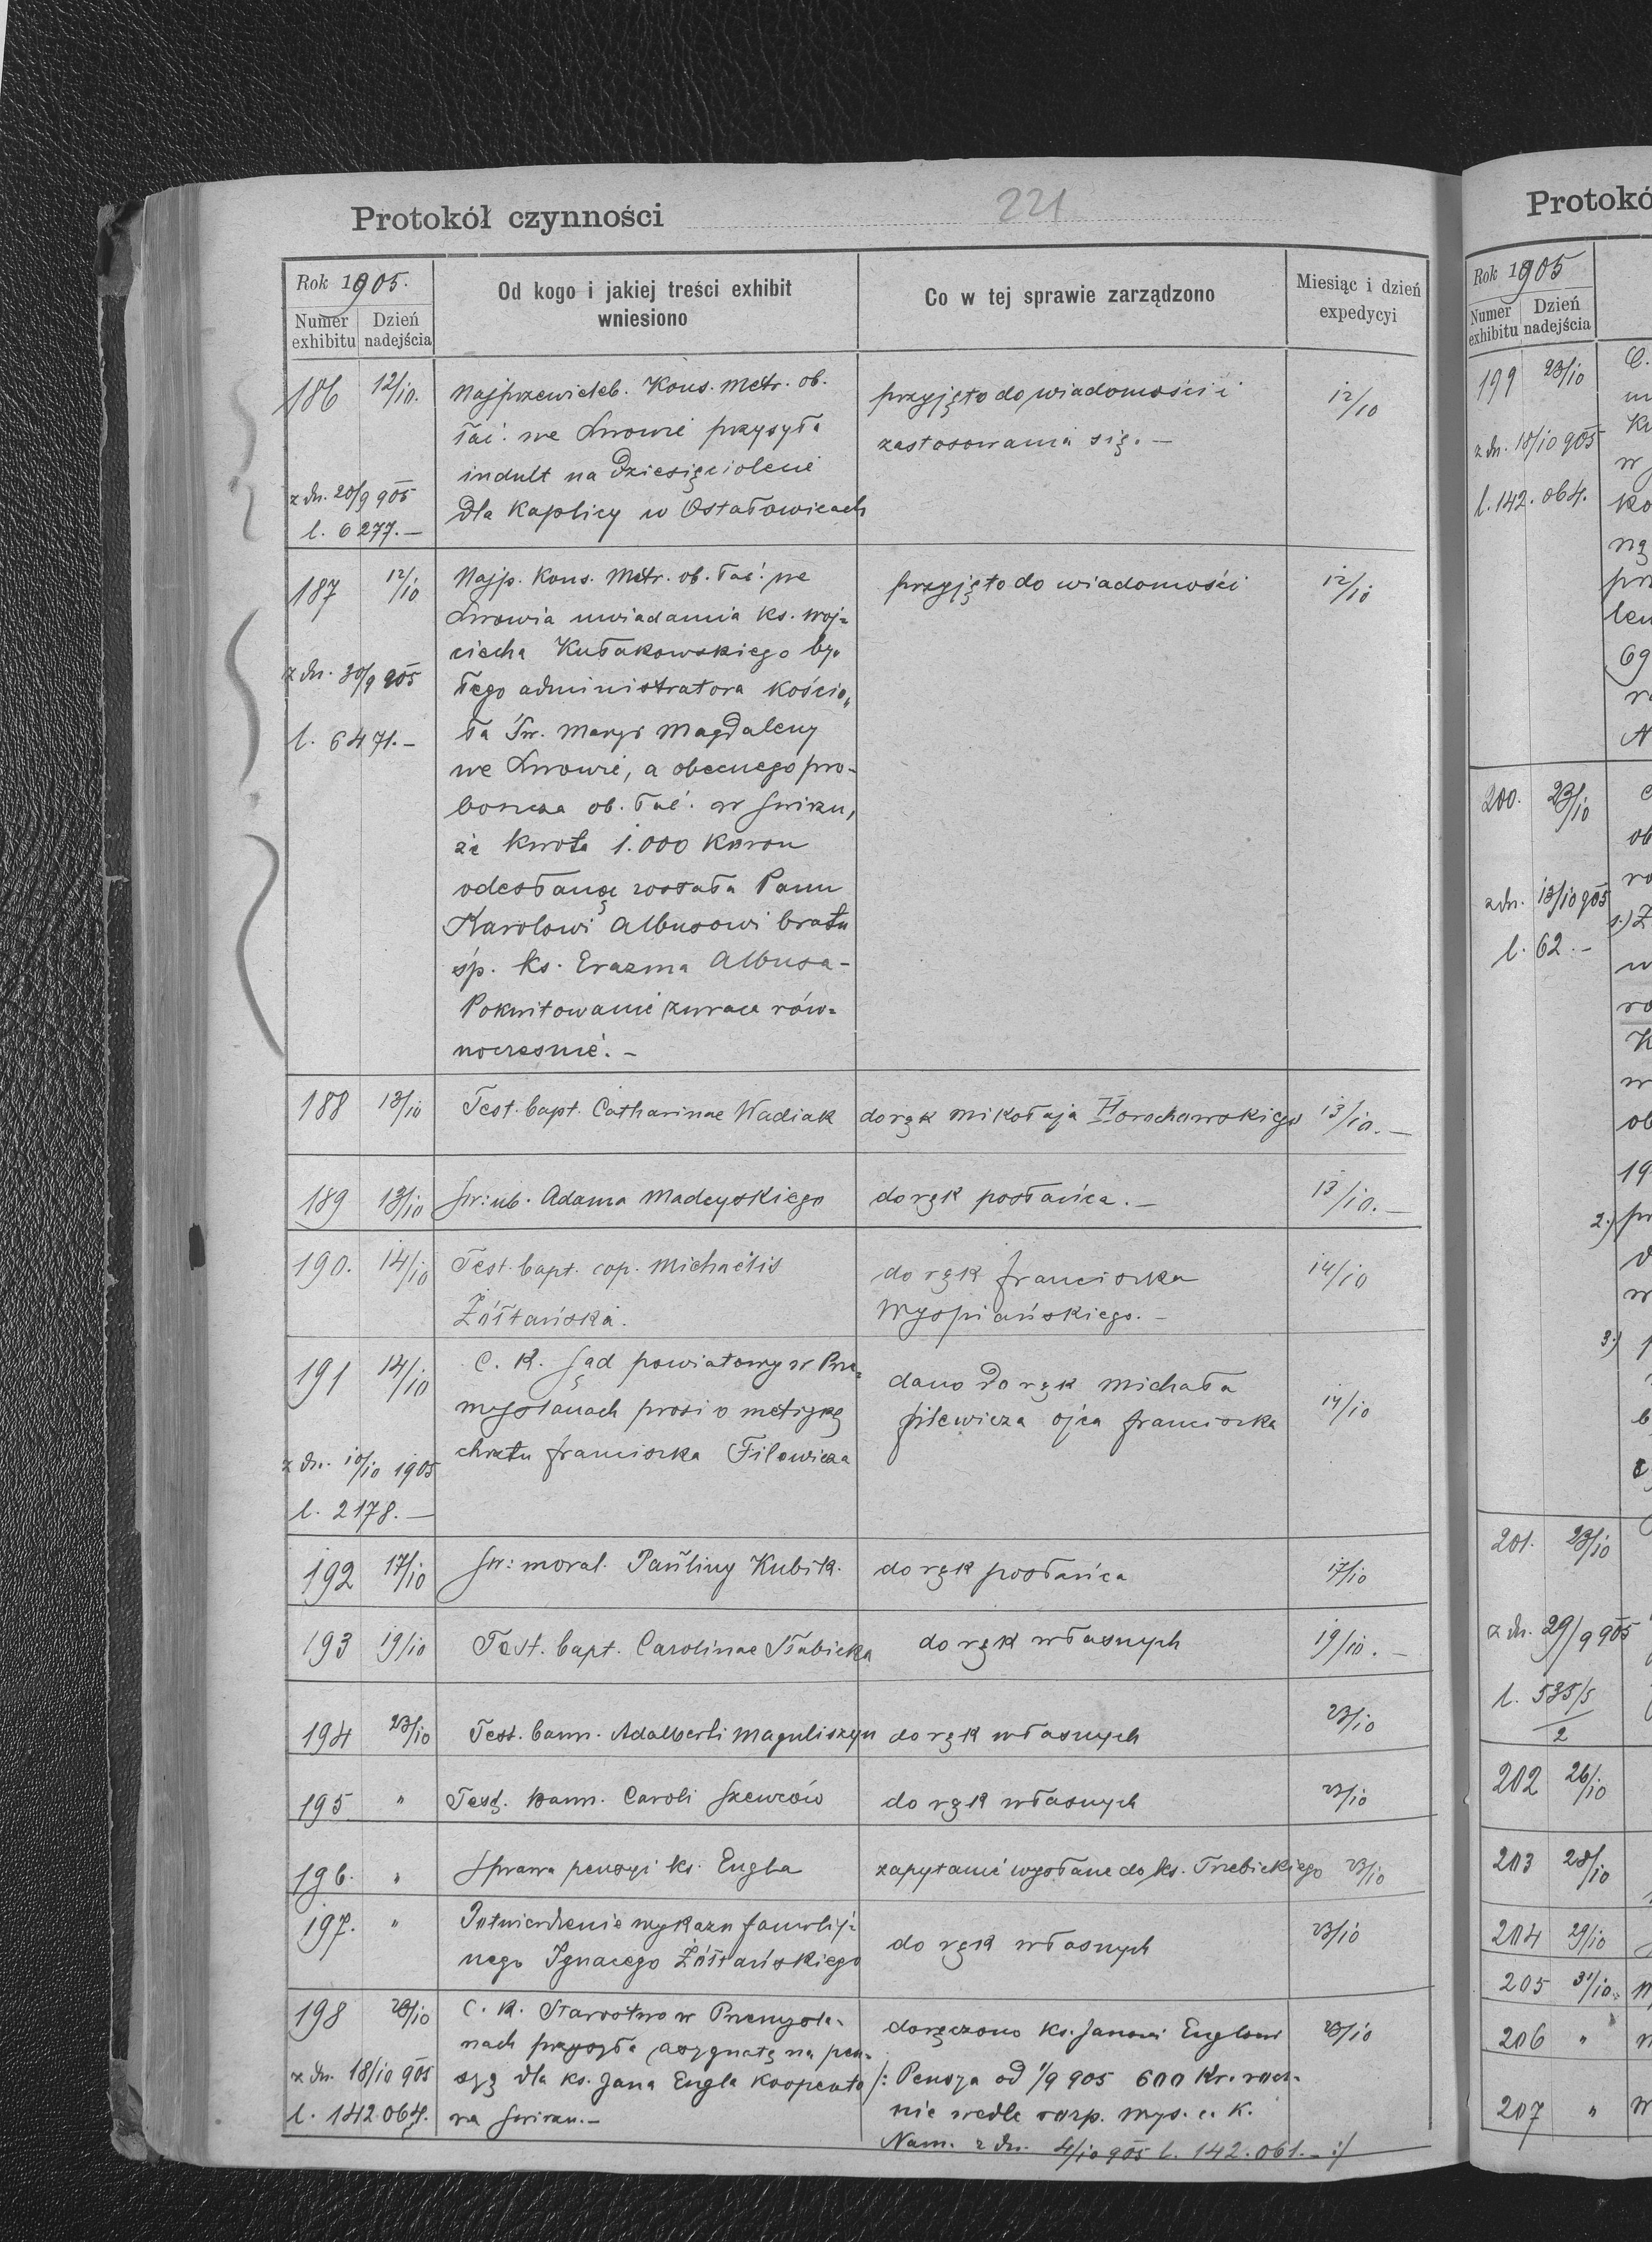 Protokół czynności 221
Rok 1905.
Numer exhibitu
Dzień nadejścia
Od kogo i jakiej treści exhibit
wniesiono
Co w tej sprawie zarządzono
Miesiąc i dzień
expedycyi
186 12/10.
Najprzewieleb. Kons. Metr. ob.
łać. we Lwowie przysyła
indult na dziesięciolecie
dla Kaplicy w Ostałowicach
z dn. 20/9 905
l. 6277. —
przyjęto do wiadomości i
zastosowania się. —
12/10
187 12/10
Najp. Kons. Metr. ob. łać. we
Lwowia uwiadamia ks. Woj=
ciecha Kułakowskiego by=
łego administratora kościo„
ła Św. Maryi Magdaleny
we Lwowie, a obecnego pro-
boszcza ob. łać. w Świrzu,
że kwota 1.000 Koron
odesłaną została Panu
Karolowi Albusowi bratu
śp. ks. Erazma Albusa -
Pokwitowanie zwraca rów=
nocześnie. —
z dn. 30/9 905
l. 6471. —
przyjęto do wiadomości
12/10
188 13/10 Test. bapt. Catharinae Wadiak
do rąk Mikołaja Horochowskiego 13/10. —
189 13/10 Św: ub. Adama Madeyskiego
do rąk posłańca. — 13/10. —
190. 14/10 Test. bapt. cop. Michaelis
Żółtański.
do rąk Franciszka
Wyspiańskiego. —
14/10
191 14/10
C. K. Sąd powiatowy w Prze=
myślanach prosi o metrykę
chrztu Franciszka Filewicza
z dn. 10/10 1905
l. 2178. —
dano do rąk Michała
Filewicza ojca Franciszka
14/10
192 17/10 Św: moral. Pauliny Kubik.
do rąk posłańca 17/10
193 19/10 Test. bapt. Carolinae Słabicka
do rąk własnych 19/10. —
194 23/10 Test. bann. Adalberti Maguliszyn
do rąk własnych 23/10
195 " Test. bann. Caroli Szewców
do rąk własnych 23/10
196. " Sprawa pensyi ks. Engla
zapytanie wysłane do ks. Trzebickiego 23/10
197. " Potwierdzenie wykazu familij=
nego Ignacego Żółtańskiego
do rąk własnych 23/10
198 23/10
C. K. Starostwo w Przemyśla-
nach przysyła asygnatę na pen-
syę dla ks. Jana Engla Kooperato
ra Świrzu. —
z dn. 18/10 905
l. 142.064.
doręczono ks. Janowi Englowi 23/10
/: Pensya od 1/9 905 600 Kr. rocz-
nie wedle rozp. wys. c. K.
Nam. z dn. 4/10 905 l. 142.061. — :/
Protokó
Rok 1905
Numer exhibitu
Dzień nadejścia
199 23/10
z dn. 18/10 905
l. 142.064.
200. 23/10
z dn. 13/10 905
l. 62. —
1.)
2.)
3.)
201. 23/10
z dn. 29/9 905
l. 535/5
2
202 26/10
203 28/10
204 29/10
205 31/10
206 "
207 "